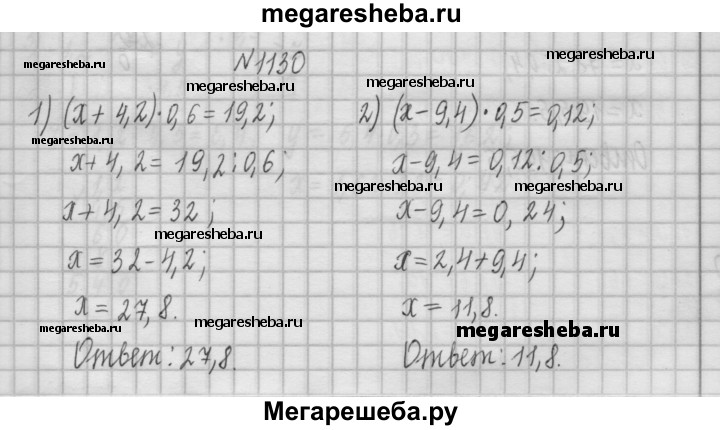 megaresheba.ru
№1130
megaresheba.ru
megaresheba.ru
megaresheba.ru
megaresheba.ru
1) (x + 4,2) · 0,6 = 19,2;
x + 4,2 = 19,2 : 0,6;
x + 4,2 = 32;
x = 32 - 4,2;
x = 27,8.
Ответ: 27,8.
megaresheba.ru
2) (x - 9,4) · 0,5 = 0,12;
x - 9,4 = 0,12 : 0,5;
x - 9,4 = 0,24;
x = 2,4 + 9,4;
x = 11,8.
Ответ: 11,8.
megaresheba.ru
megaresheba.ru
megaresheba.ru
megaresheba.ru
megaresheba.ru
megaresheba.ru
Мегарешеба.ру